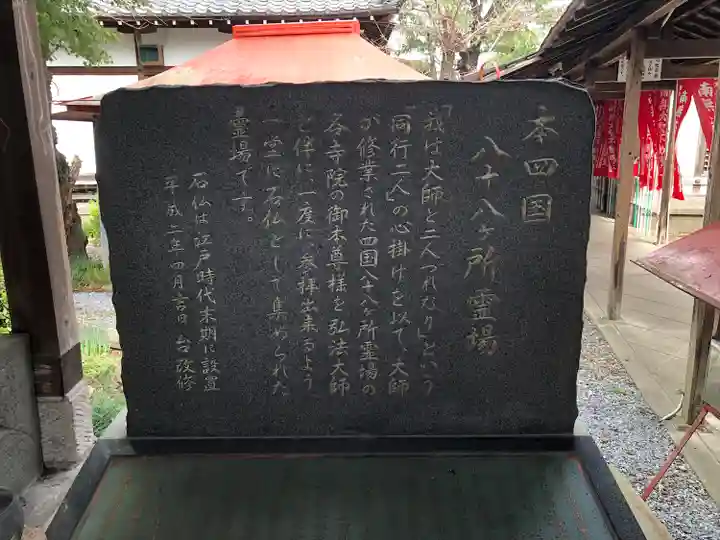 本四国
八十八ヶ所霊場
「我は大師と二人つれなり」という
「同行二人」の心掛けを以て、大師
が修業された四国八十八ヶ所霊場の
各寺院の御本尊様を弘法大師
と伴に一度に、参拝出来るよう
一堂に石仏として集められた
霊場です。
石仏は江戸時代末期に設置
平成二年四月吉日 台改修